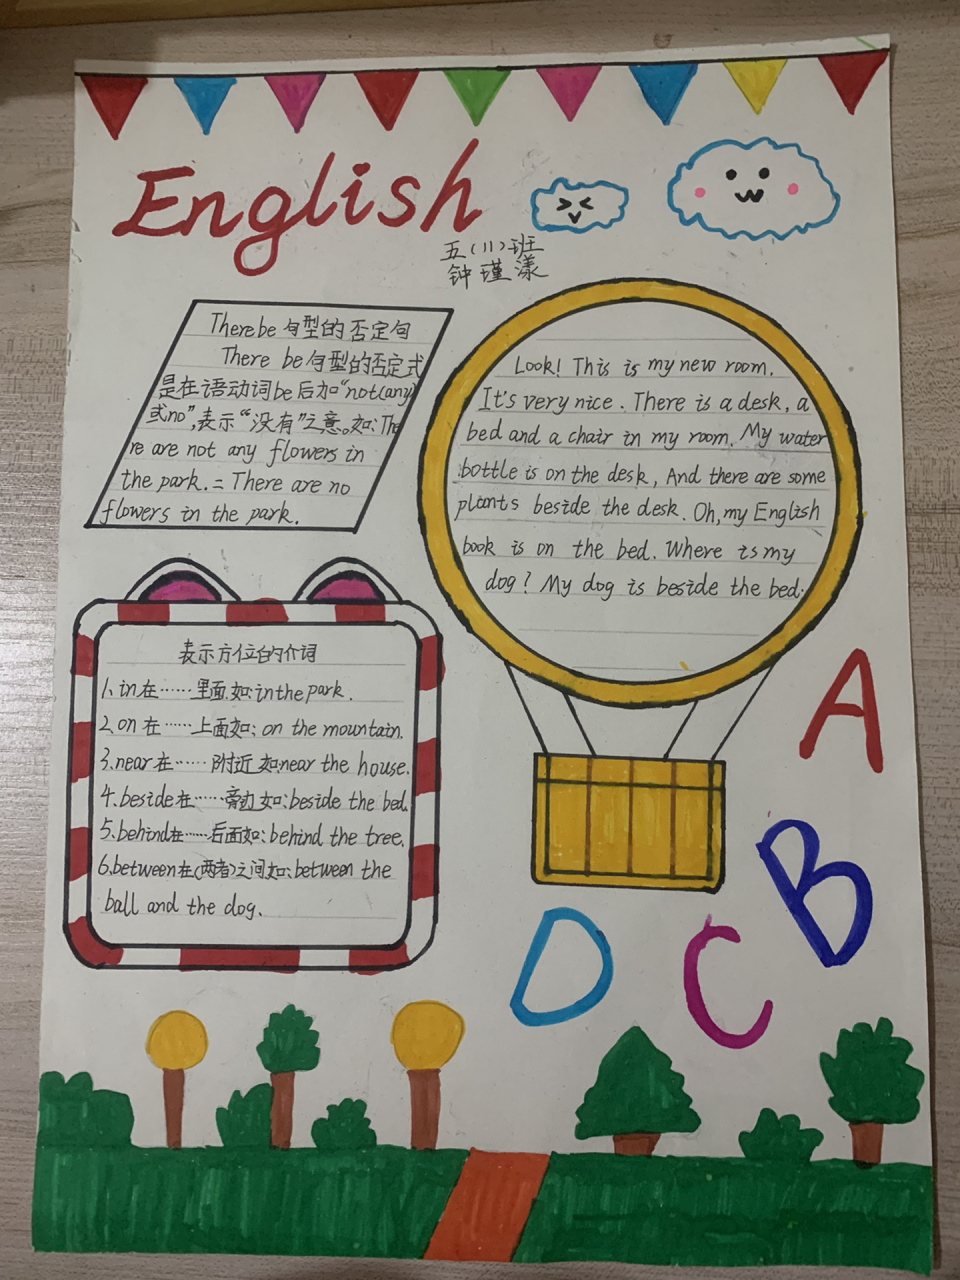 English
五(11)班
钟瑾漾
There be 句型的否定句
There be 句型的否定式
是在语动词be后加“not(any)
或no”,表示“没有”之意。如:The
re are not any flowers in
the park.= There are no
flowers in the park.
Look! This is my new room.
It's very nice. There is a desk, a
bed and a chair in my room. My water
bottle is on the desk, And there are some
plants beside the desk. Oh, my English
book is on the bed. Where is my
dog? My dog is beside the bed.
表示方位的介词
1.in在……里面如:in the park.
2.on在……上面如:on the mountain.
3.near在……附近如:near the house.
4.beside在……旁边如:beside the bed.
5.behind在……后面如:behind the tree.
6.between在(两者)之间如:between the
ball and the dog.
A
B
D
C